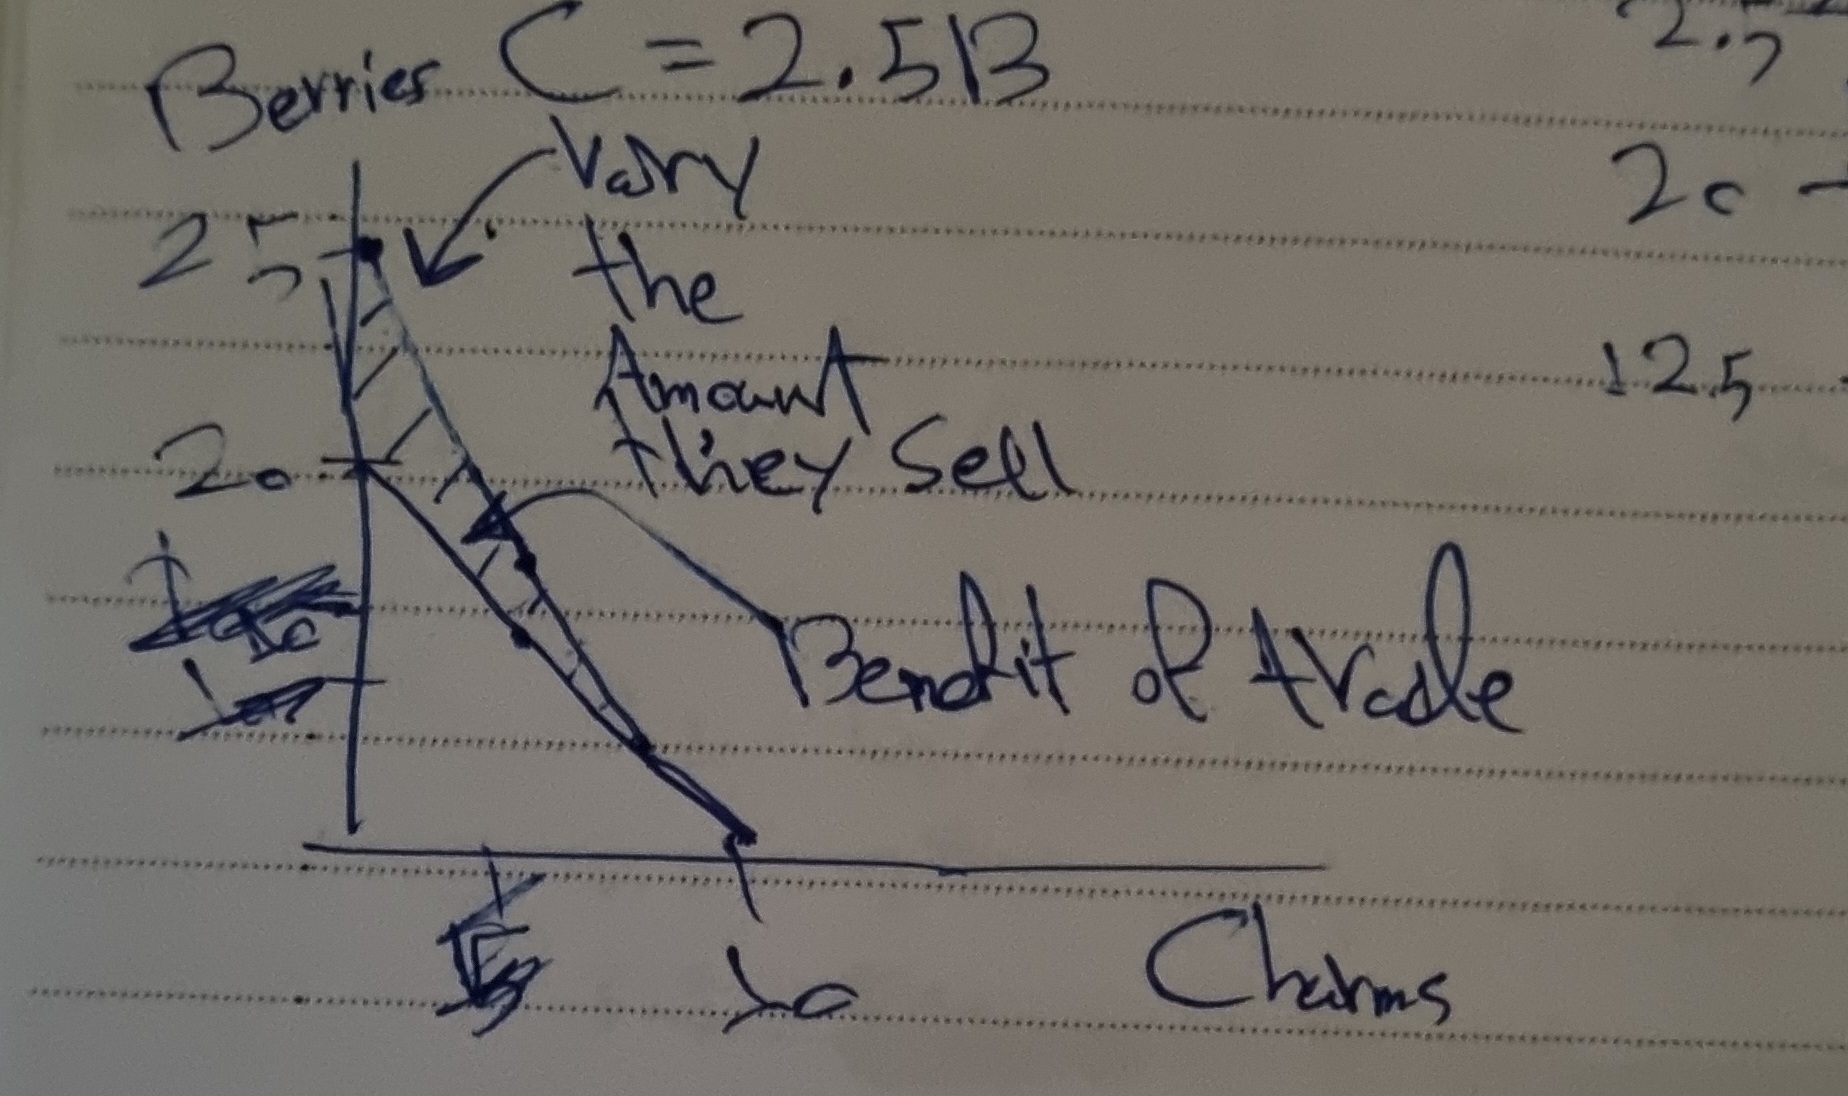 Berries C = 2.5B
Vary
the
Amount
they Sell
25
20
Benefit of trade
10
Charms
2.5
20
12.5